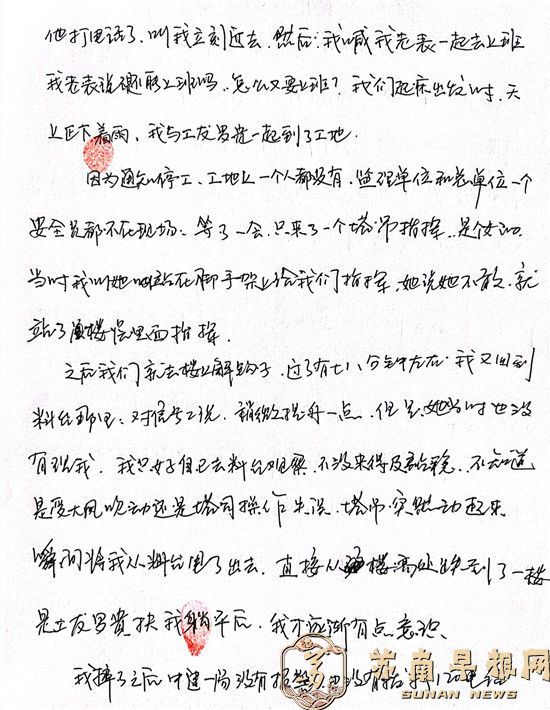 他打电话了，叫我立刻过去，然后：我喊我老表一起去上班
我老表说确上班吗，怎么又要上班？我们起床出发时，天
上正下着雨，我与工友罗贵一起到了工地.
因为通知停工、工地上一个人都没有，监理单位和总单位一个
安全员都不在现场：等了一会，只来了一个塔吊指挥，是个女的.
当时我叫她站在脚手架上给我们指挥，她说她不敢，就
站了楼层里面指挥.
之后我们就去楼上解钩子，过了有七八分钟左右，我又回到
料台那里：对信号工说，稍微提升一点，但是她当时也没
有理我，我只好自己去料台观察，还没来得及站稳、不知道
是受大风吹动还是塔司操作失误，塔吊突然动起来
瞬间将我从料台甩了出去，直接从楼高处跌到了一楼
是工友罗贵扶我躺平后，我才逐渐有点意识、
我摔了之后中建一局没有报警也没有
苏南早报网
SUNAN NEWS